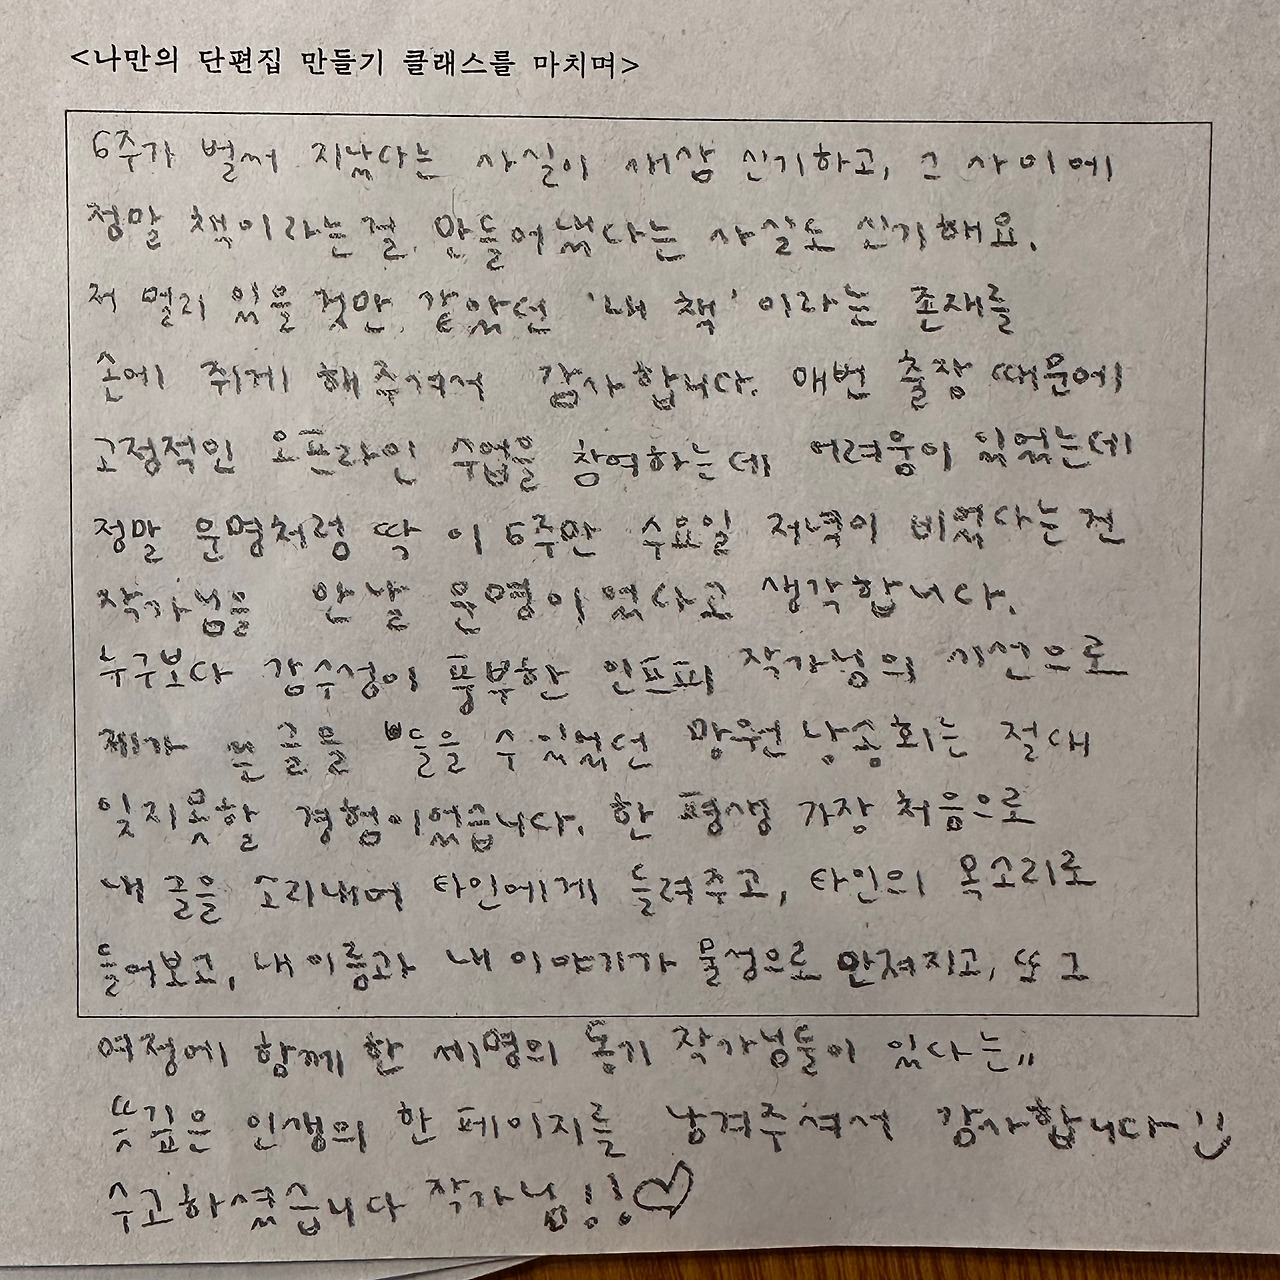 <나만의 단편집 만들기 클래스를 마치며>
6주가 벌써 지났다는 사실이 새삼 신기하고, 그 사이에
정말 책이라는 걸 만들어냈다는 사실도 신기해요.
저 멀리 있을 것만 같았던 '내 책' 이라는 존재를
손에 쥐게 해주셔서 감사합니다. 매번 출장 때문에
고정적인 오프라인 수업을 참여하는데 어려움이 있었는데
정말 운명처럼 딱 이 6주만 수요일 저녁이 비었다는 건
작가님을 만날 운명이었다고 생각합니다.
누구보다 감수성이 풍부한 인프피 작가님의 시선으로
제가 쓴 글을 들을 수 있었던 망원 낭송회는 절대
잊지못할 경험이었습니다. 한 평생 가장 처음으로
내 글을 소리내어 타인에게 들려주고, 타인의 목소리로
들어보고, 내 이름과 내 이야기가 물성으로 만져지고, 또 그
여정에 함께 한 세명의 동기 작가님들이 있다는,,
뜻깊은 인생의 한 페이지를 남겨주셔서 감사합니다 :)
수고하셨습니다 작가님!!♡